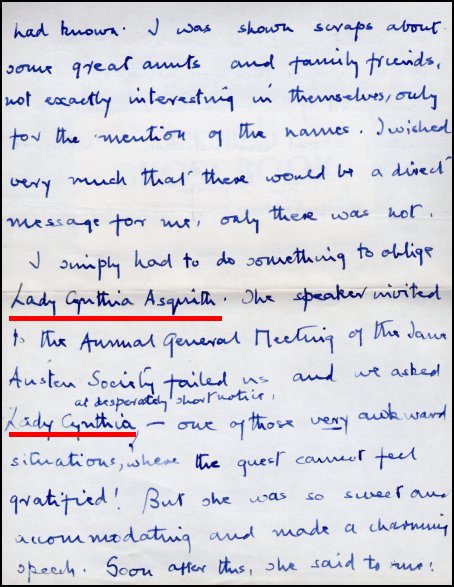 had known. I was shown scraps about
some great aunts and family friends,
not exactly interesting in themselves, only
for the mention of the names. I wished
very much that there would be a direct
message for me, only there was not.
I simply had to do something to oblige
Lady Cynthia Asquith. The speaker invited
to the Annual General Meeting of the Jane
Austen Society failed us and we asked
at desperately short notice,
Lady Cynthia, — one of those very awkward
situations, where the guest cannot feel
gratified! But she was so sweet and
accommodating and made a charming
speech. Soon after this, she said to me: